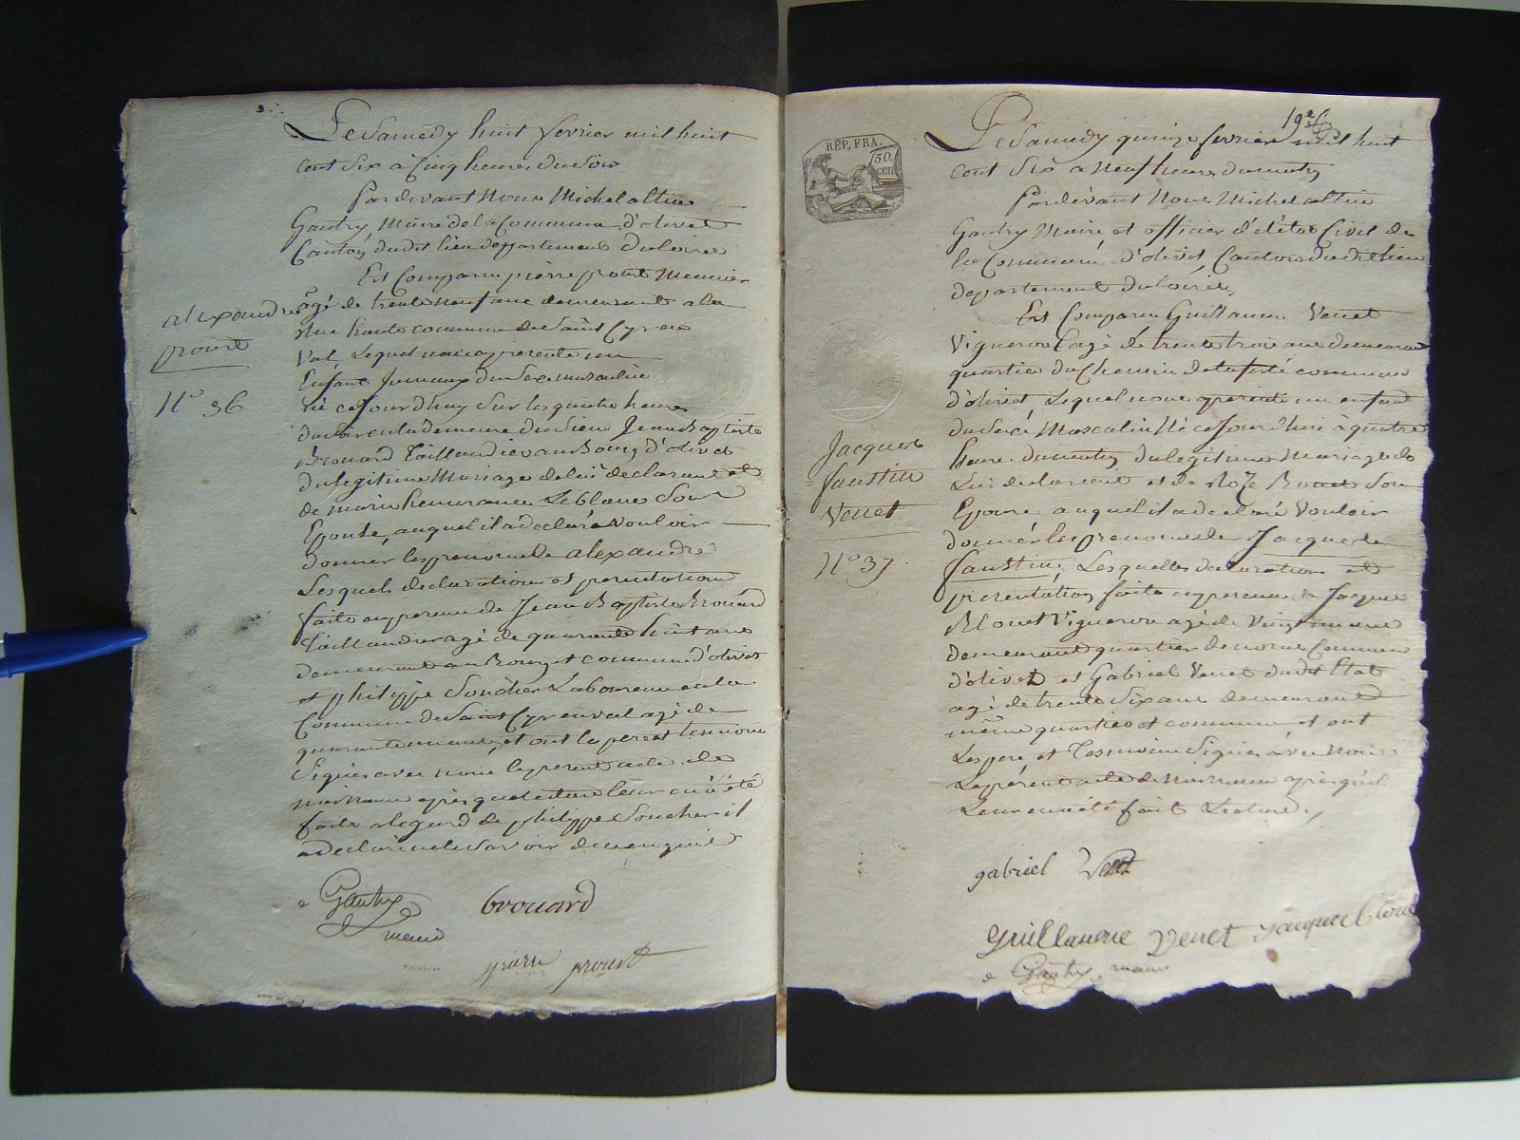 Le Samedy huit fevrier mil huit
cent Six à Cinq heures du Soir
Pardevant Nous Michel altin
Gautry Maire de la Commune d'olivet
Canton dudit lieu departement du loiret
Est Comparu pierre prout Meunier
agé de trente neuf ans demeurant a la
Rue haute commune de Saint Cyr en
Val, Lequel nous a presenté un
Enfant Jumeaux du Sexe masculin
né cejourd'huy Sur les quatre heures
du Soir en la demeure du Sieur Jean Baptiste
Brouard Taillandier au Bourg d'olivet
du legitime Mariage de lui declarant et
de marie Leblanc Son
Epouse, auquel il a declaré vouloir
donner les prenoms de alexandre
Lesquels declaration et presentation
faite en presence de Jean Baptiste Brouard
Taillandier agé de quarante huit ans
demeurant au Bourg et commune d'olivet
et philippe Souchet Laboureur en la
Commune de Saint Cyr en val agé de
quarante ans, et ont les pere et temoins
Signés avec nous le present acte de
naissance après que lecture leur en a été
faite a legard de philippe Souchet il
a declaré ne le Savoir de ce enquis
alexandre
prout
N° 36
Gautry
maire
brouard
pierre prout
19e
REP. FRA.
50
CEN
Le Samedy quinze fevrier mil huit
cent Six a neuf heures du matin
Pardevant Nous Michel altin
Gautry Maire et officier d'état Civil de
la Commune d'olivet Canton dudit lieu
departement du loiret,
Est Comparu Guillaume Venet
Vigneron agé de trente trois ans demeurant
quartier du Chemin de la ferté commune
d'olivet Lequel nous a presenté un enfant
du Sexe Masculin Né cejourd'hui à quatre
heures du matin du legitime Mariage de
Lui declarant et de Roze Son
Epouse auquel il a declaré Vouloir
donner les prenoms de Jacques
faustin, Lesquelles declaration et
presentation faite en presence de Jacques
Vigneron agé de Vingt ans
demeurant quartier Commune
d'olivet et Gabriel Venet dudit Etat
agé de trente Six ans demeurant
même quartier et commune et ont
Les pere et Tesmoins Signés avec nous
Le présent acte de Naissance après qu'il
Leur en a été fait Lecture,
Jacques
faustin
Venet
N° 37
gabriel Venet
guillaume Venet Jacques
Gautry maire